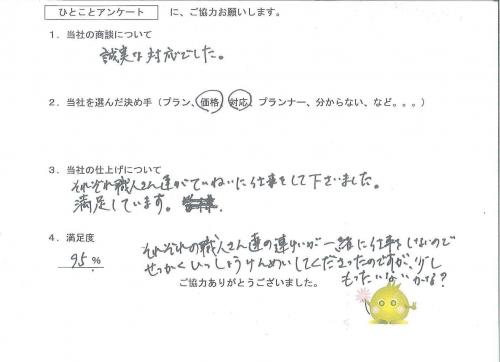 ひとことアンケート に、ご協力お願いします。
1．当社の商談について
誠実な対応でした。
2．当社を選んだ決め手（プラン、価格、対応、プランナー、分からない、など。。。）
3．当社の仕上げについて
それぞれ職人さん達がていねいに仕事をして下さいました。
満足しています。
4．満足度
95 %
それぞれの職人さん達の連けいが一緒に仕事をしないので
せっかくいっしょうけんめいしてくださったのですが、少し
もったいないかな？
ご協力ありがとうございました。